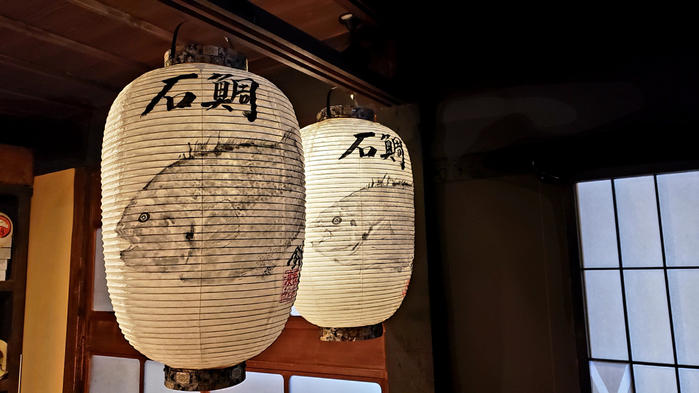 石鯛
石鯛